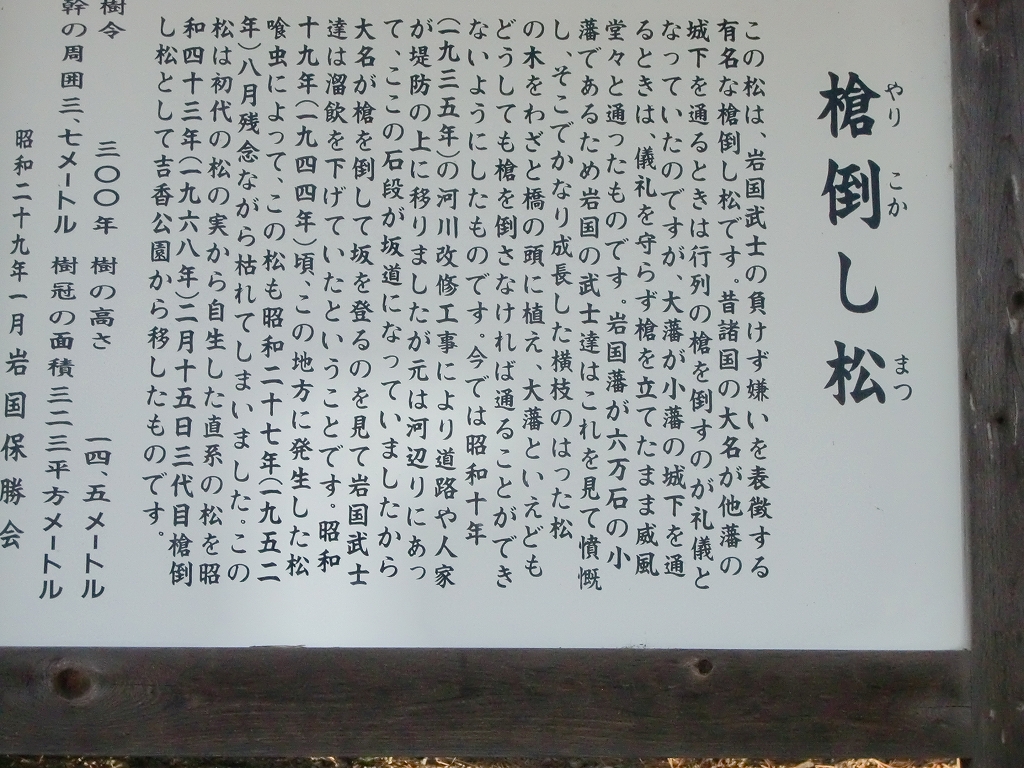 槍倒し松
やり こか まつ
この松は、岩国武士の負けず嫌いを表徴する
有名な槍倒し松です。昔諸国の大名が他藩の
城下を通るときは行列の槍を倒すのが礼儀と
なっていたのですが、大藩が小藩の城下を通
るときは、儀礼を守らず槍を立てたまま威風
堂々と通ったものです。岩国藩が六万石の小
藩であるため岩国の武士達はこれを見て憤慨
し、そこでかなり成長した横枝のはった松
の木をわざと橋の頭に植え、大藩といえども
どうしても槍を倒さなければ通ることができ
ないようにしたものです。今では昭和十年
(一九三五年)の河川改修工事により道路や人家
が堤防の上に移りましたが元は河辺りにあっ
て、ここの石段が坂道になっていましたから
大名が槍を倒して坂を登るのを見て岩国武士
達は溜飲を下げていたということです。昭和
十九年(一九四四年)頃、この地方に発生した松
喰虫によって、この松も昭和二十七年(一九五二
年)八月残念ながら枯れてしまいました。この
松は初代の松の実から自生した直系の松を昭
和四十三年(一九六八年)二月十五日三代目槍倒
し松として吉香公園から移したものです。
樹令 三〇〇年 樹の高さ 一四、五メートル
幹の周囲三、七メートル 樹冠の面積三二三平方メートル
昭和二十九年一月 岩国保勝会